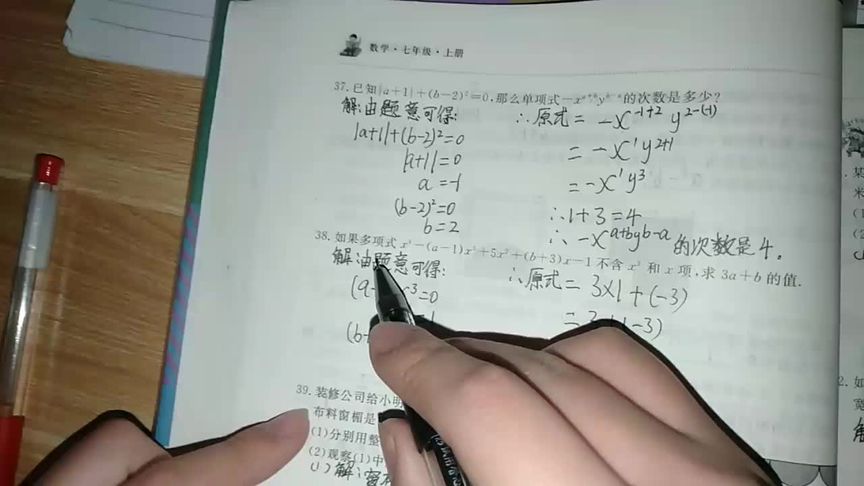 数学·七年级·上册
37.已知|a+1|+(b-2)²=0,那么单项式-xᵃ⁺ᵇyᵇ⁻ᵃ的次数是多少?
解:由题意可得:
|a+1|+(b-2)²=0
|a+1|=0
a=-1
(b-2)²=0
b=2
∴原式=-x⁻¹⁺²y²⁻⁽⁻¹⁾
=-x¹y²⁺¹
=-x¹y³
∴1+3=4
∴-xᵃ⁺ᵇyᵇ⁻ᵃ的次数是4.
38.如果多项式
-(a-1)x³+5x²+(b+3)x-1不含x³和x项,求3a+b的值.
解:由题意可得:
=0
∴原式=3×1+(-3)
-3)
39.装修公司给小明
布料窗帘是
(1)分别用整
(2)观察(1)中
(1)解:窗